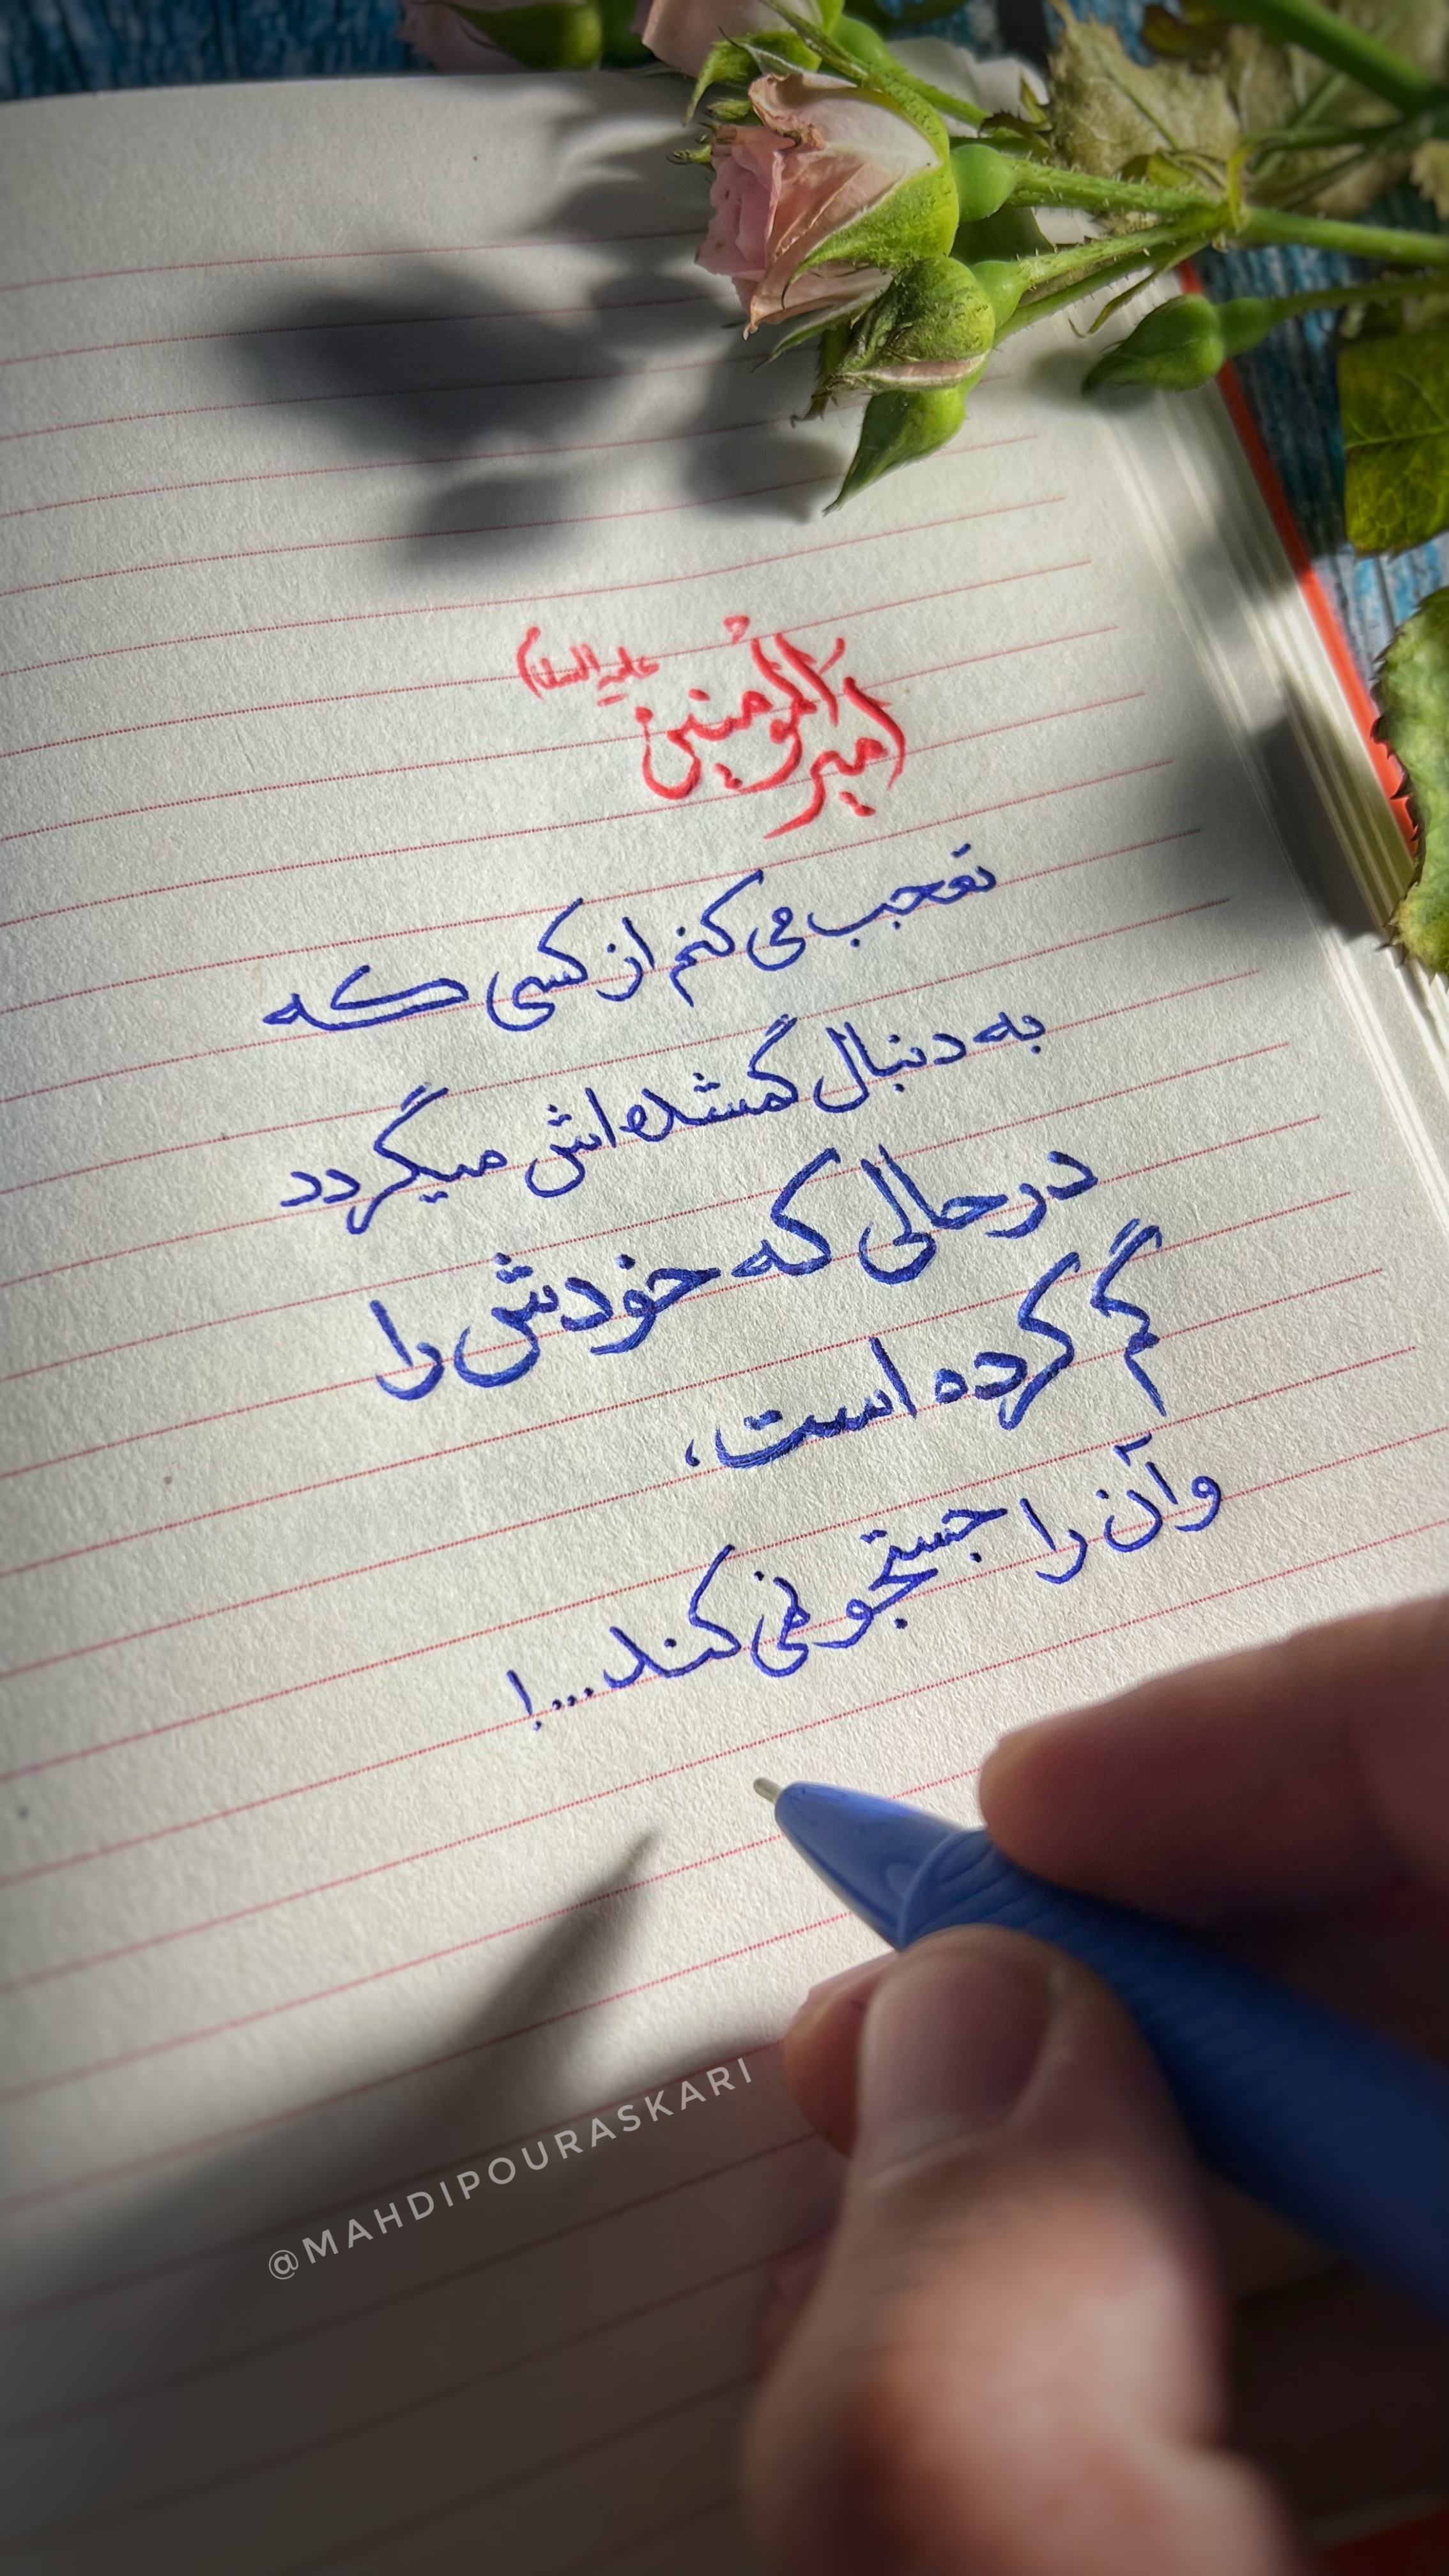 امیرالمؤمنین علیه السلام
تعجب می کنم از کسی که
به دنبال گمشده اش میگردد
در حالی که خودش را
گم کرده است،
و آن را جستجو نمی کند...!
@MAHDIPOURASKARI